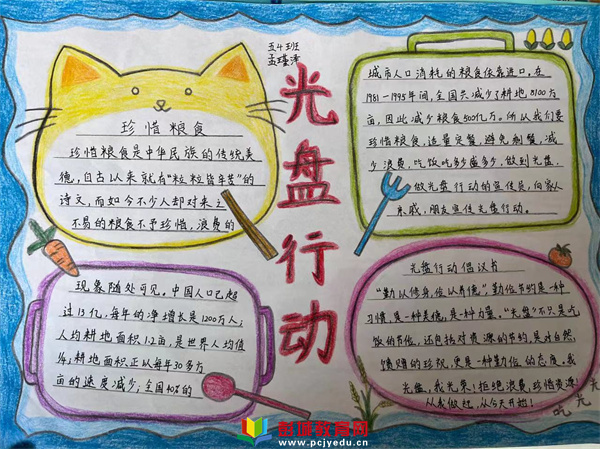 五4班
孟瑾泽
光盘行动
珍惜粮食
珍惜粮食是中华民族的传统美
德,自古以来就有“粒粒皆辛苦”的
诗文,而如今不少人却对来之
不易的粮食不予珍惜,浪费的
现象随处可见。中国人口已超
过13亿,每年的净增长是1200万人;
人均耕地面积1.2亩,是世界人均值
1/4;耕地面积正以每年30多万
亩的速度减少;全国40%的
城市人口消耗的粮食依靠进口。在
1981—1995年间,全国共减少了耕地8100万
亩,因此减少粮食500亿万。所以我们要
珍惜粮食,适量定餐,避免剩餐,减
少浪费,吃饭吃多少盛多少,做到光盘,
做光盘行动的宣传员,向家人
亲戚,朋友宣传光盘行动。
光盘行动倡议书
“勤以修身,俭以养德”,勤俭节约是一种
习惯,是一种美德,是一种力量。“光盘”不只是吃
饭的节俭,还包括对资源的节约,是对自然
馈赠的珍视,更是一种勤俭的态度。我
光盘,我光荣!拒绝浪费,珍惜资源!
从我做起,从今天开始!
吃光光
彭城教育网
www.pcjyedu.cn